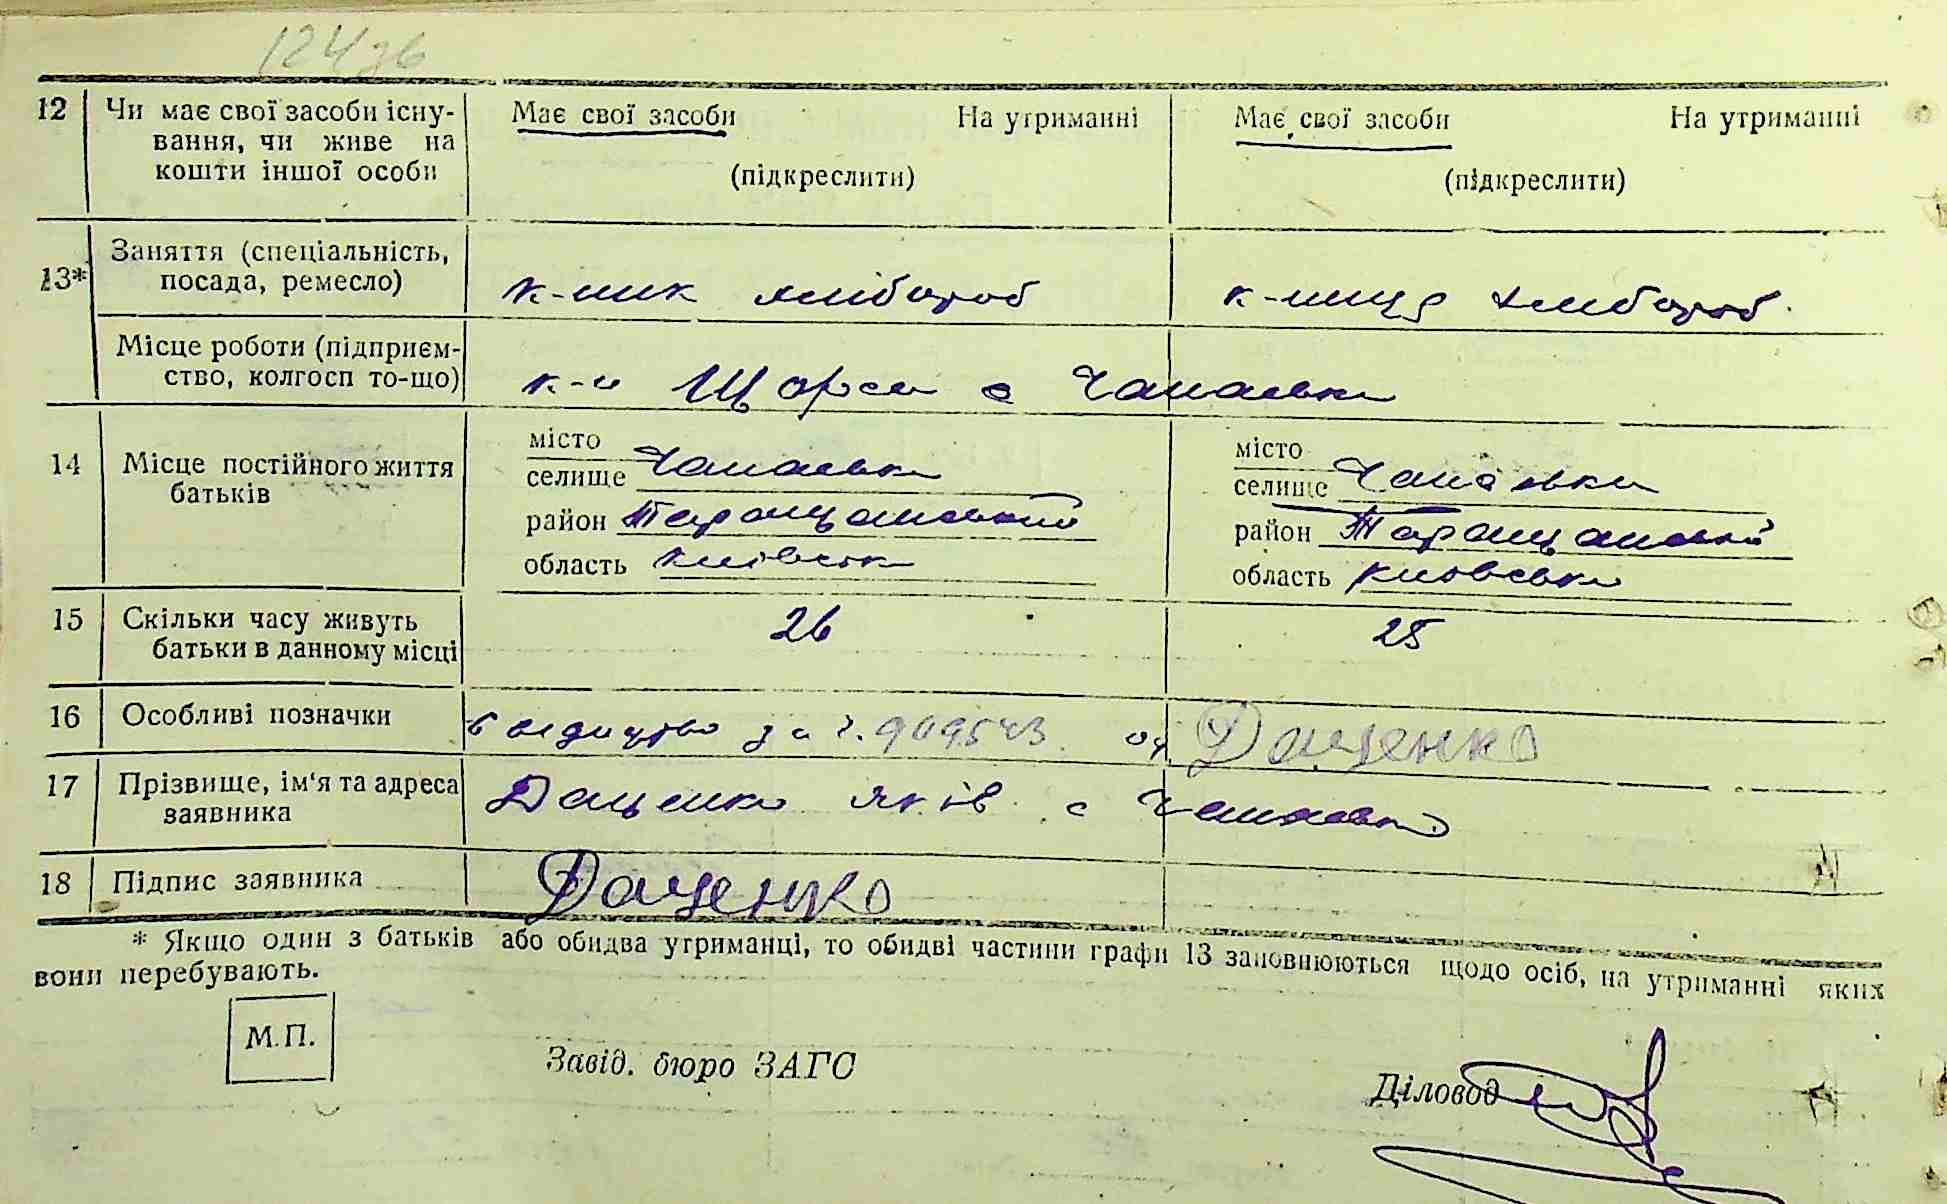 124зв
12 Чи має свої засоби існу- Має свої засоби На утриманні Має свої засоби На утриманні
вання, чи живе на
кошти іншої особи (підкреслити) (підкреслити)
13* Заняття (спеціальність,
посада, ремесло) к-ник хлібороб к-ниця хлібороб
Місце роботи (підприєм-
ство, колгосп то-що) к-п Щорса с Чапаєвка
14 Місце постійного життя
батьків
місто місто
селище Чапаєвка селище Чапаєвка
район Таращанський район Таращанський
область київськ область київська
15 Скільки часу живуть 26 25
батьки в данному місці
16 Особливі позначки свідоцтво за №. 909543 од Даценко
17 Прізвище, ім'я та адреса
заявника Даценко Яків с Чапаєвка
18 Підпис заявника Даценко
* Якщо один з батьків або обидва утриманці, то обидві частини графи 13 заповнюються щодо осіб, на утриманні яких
вони перебувають.
М.П.
Завід. бюро ЗАГС
Діловод